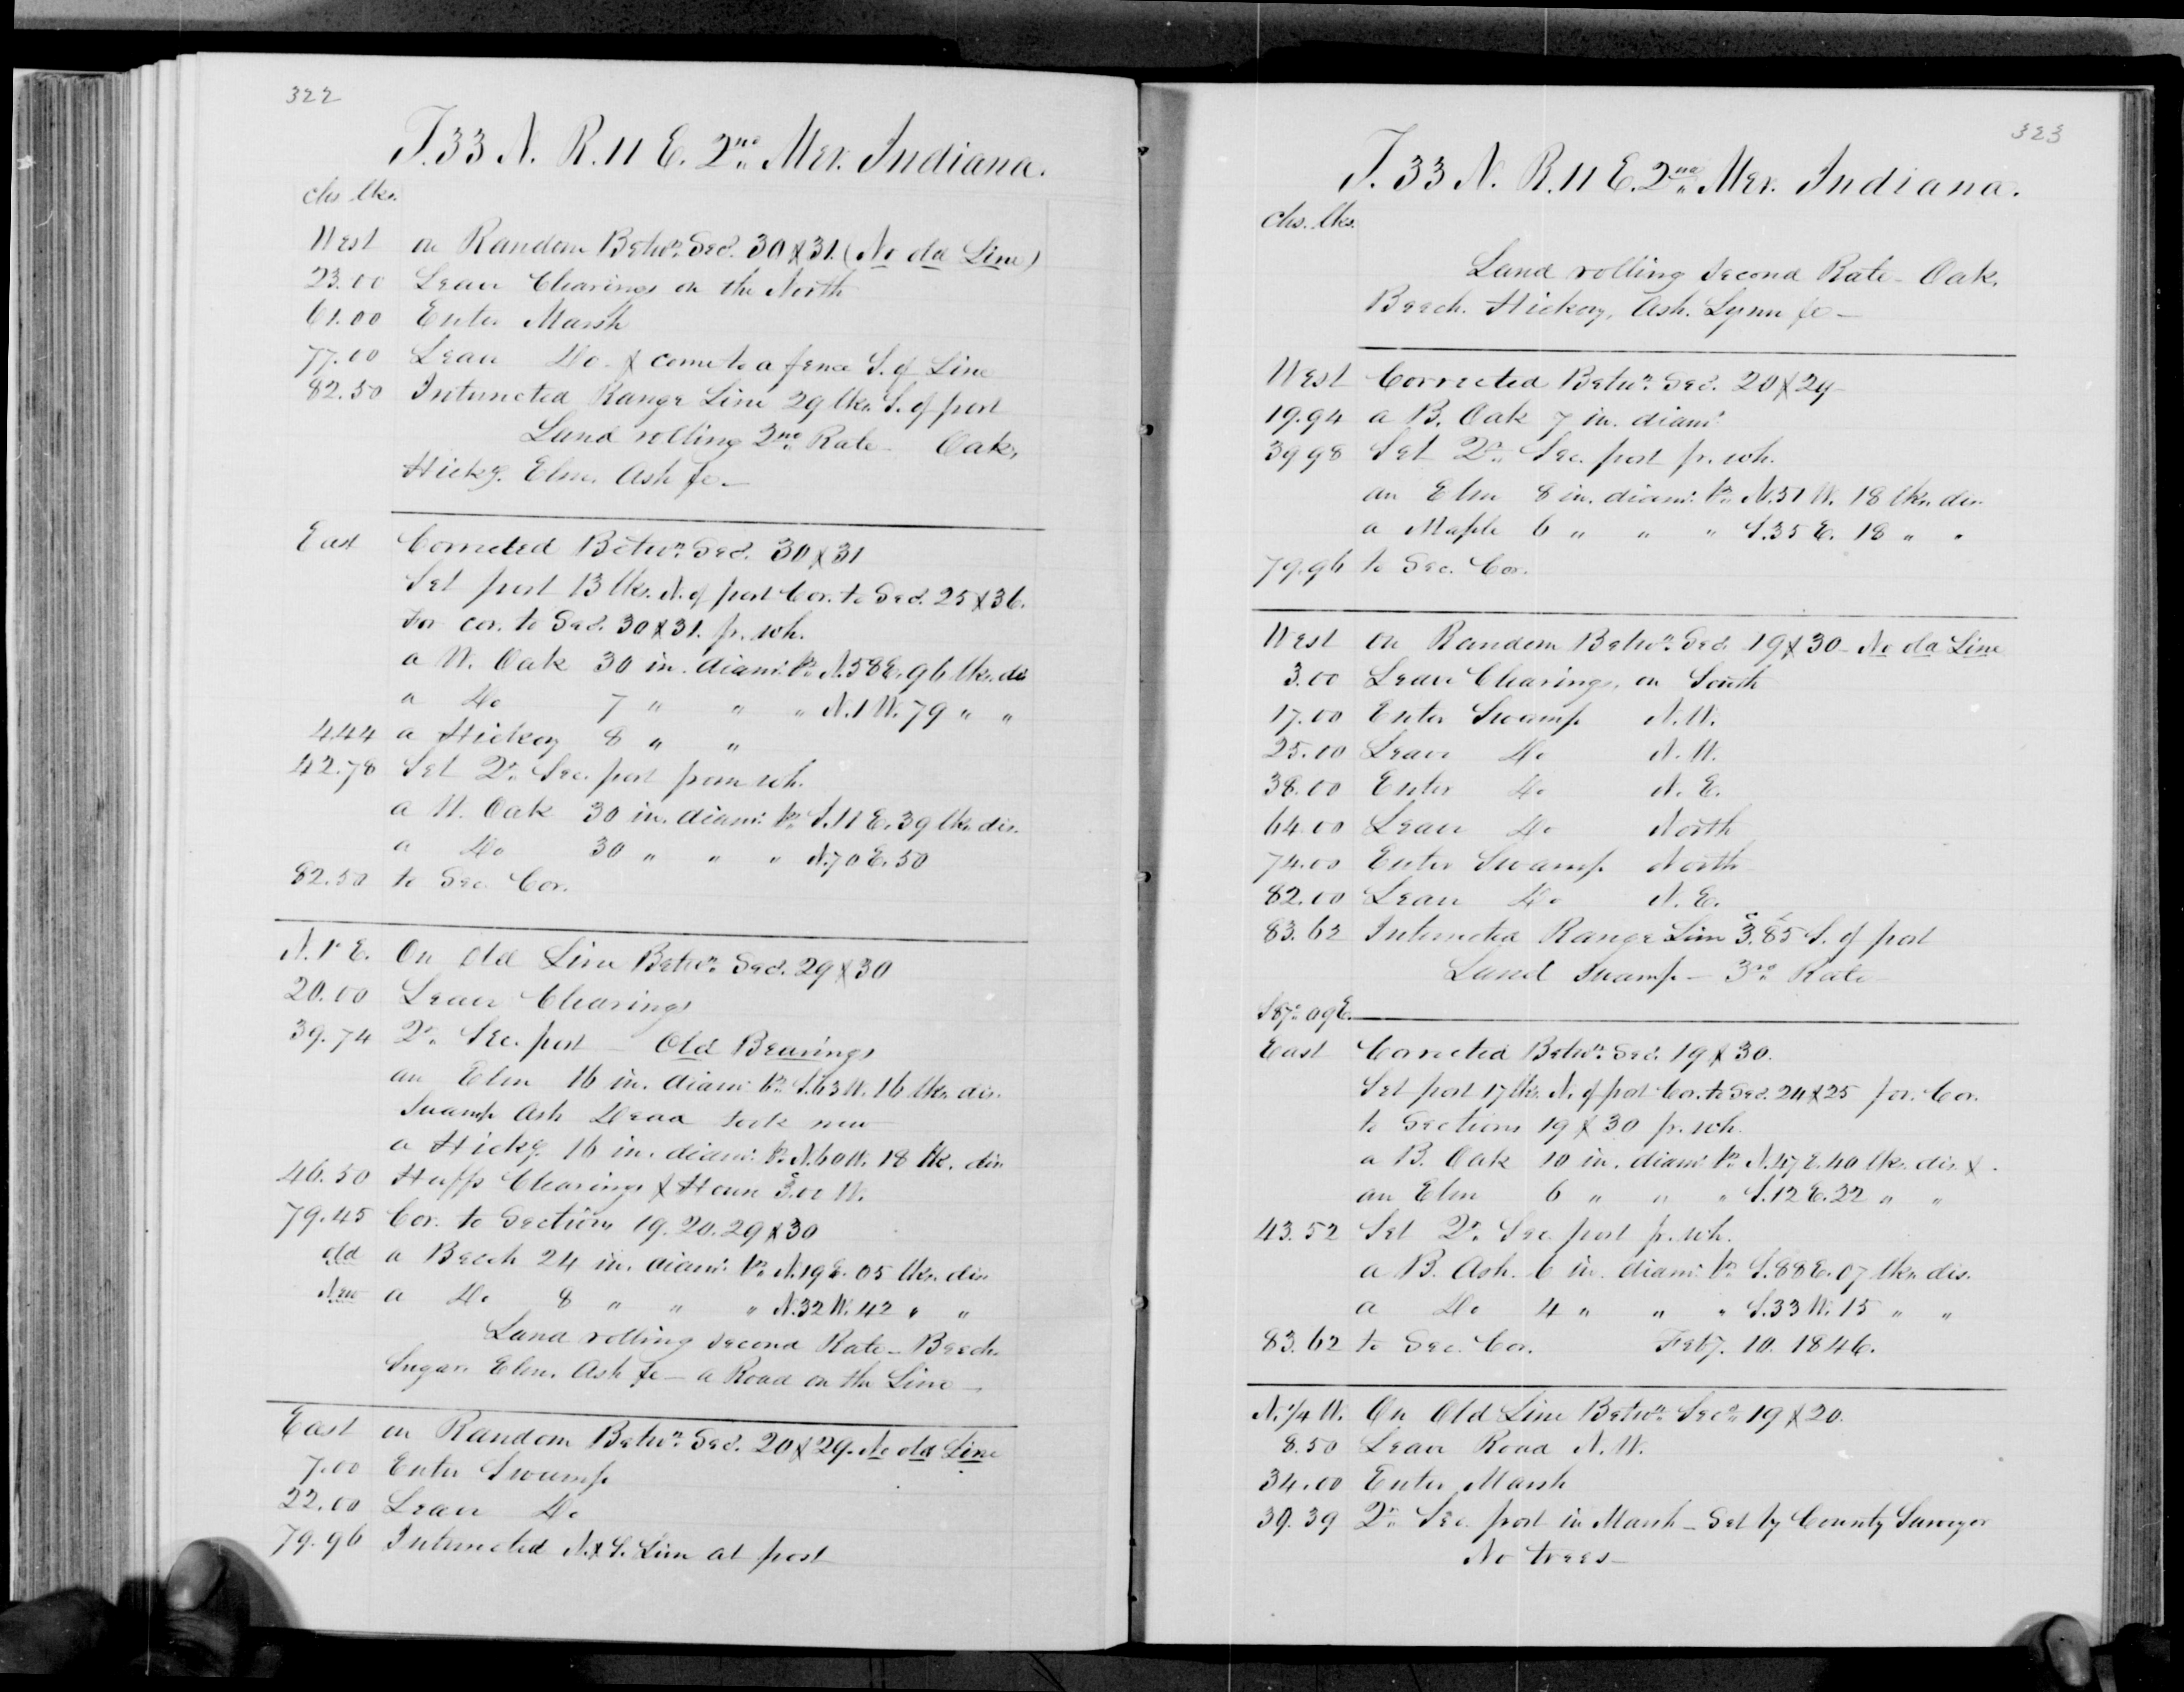 322
T. 33 N. R. 11 E. 2nd Mer. Indiana.
chs lks.
West on Random Betwn Secs. 30 & 31. (No old Line)
23.00 Leave Clearings on the North
61.00 Enter Marsh
77.00 Leave Do. & come to a fence S. of Line
82.50 Intersected Range Line 29 lks. S. of post
Land rolling 2nd Rate Oak,
Hicky. Elm. Ash &c—
East Corrected Betwn Secs. 30 & 31
Set post 13 lks. N. of post Cor. to Secs. 25 & 36.
For cor. to Secs. 30 & 31. fr. wh.
a W. Oak 30 in. diamr. brs N. 58 E. 96 lks. dis
a Do 7 " " " N. 1 W. 79 " "
4.44 a Hickory 8 " "
42.78 Set Qr. Sec. post from wh.
a W. Oak 30 in. diamr. brs S. 11 E. 39 lks. dis.
a Do 30 " " " N. 70 E. 50
82.50 to Sec. Cor.
N. 1° E. On Old Line Betwn Secs. 29 & 30
20.00 Leave Clearings
39.74 Qr. Sec. post — Old Bearings
an Elm 16 in. diamr. brs S. 63 W. 16 lks. dis.
Swamp Ash Dead took new
a Hicky. 16 in. diamr. brs N. 60 W. 18 lk. dis
46.50 Hupps Clearings & House 3.00 W.
79.45 Cor. to Sections 19. 20. 29 & 30
old a Beech 24 in. diamr. brs N. 19 E. 05 lks. dis
New a Do 8 " " " N. 32 W. 42 " "
Land rolling second Rate — Beech.
Sugar. Elm. Ash &c — a Road on the Line —
East on Random Betwn Secs. 20 & 29. No old Line
7.00 Enter Swamp
22.00 Leave Do
79.96 Intersected N. & S. Line at post
323
T. 33 N. R. 11 E. 2nd Mer. Indiana.
chs. lks.
Land rolling second Rate — Oak.
Beech. Hickory, Ash. Lynn &c —
West Corrected Betwn Secs. 20 & 29
19.94 a B. Oak 7 in. diamr
39.98 Set Qr. Sec. post fr. wh.
an Elm 8 in. diamr. brs N. 51 W. 18 lks. dis
a Maple 6 " " " S. 35 E. 18 " "
79.96 to Sec. Cor.
West on Random Betwn Secs 19 & 30 — No old Line
3.00 Leave Clearings, on South
17.00 Enter Swamp N. W.
25.00 Leave Do N. W.
38.00 Enter Do N. E.
64.00 Leave Do North
74.00 Enter Swamp North
82.00 Leave Do N. E.
83.62 Intersected Range Line 3.85 S. of post
Land Swamp — 3rd Rate
S 87° 09 E.
East Corrected Betwn Secs. 19 & 30.
Set post 17 lks. N. of post Cor. to Secs. 24 & 25 for. Cor.
to Sections 19 & 30 fr. wh.
a B. Oak 10 in. diamr. brs N. 47 E. 40 lks. dis. & .
an Elm 6 " " " S. 12 E. 22 " "
43.52 Set Qr. Sec. post fr. wh.
a B. Ash. 6 in. diamr. brs S. 88 E. 07 lks. dis.
a Do 4 " " " S. 33 W. 15 " "
83.62 to Sec. Cor. Feby. 10. 1846.
N. 1/4 W. On Old Line Betwn Secs 19 & 20.
8.50 Leave Road N. W.
34.00 Enter Marsh
39.39 Qr. Sec. post in Marsh — Set by County Surveyor
No trees —